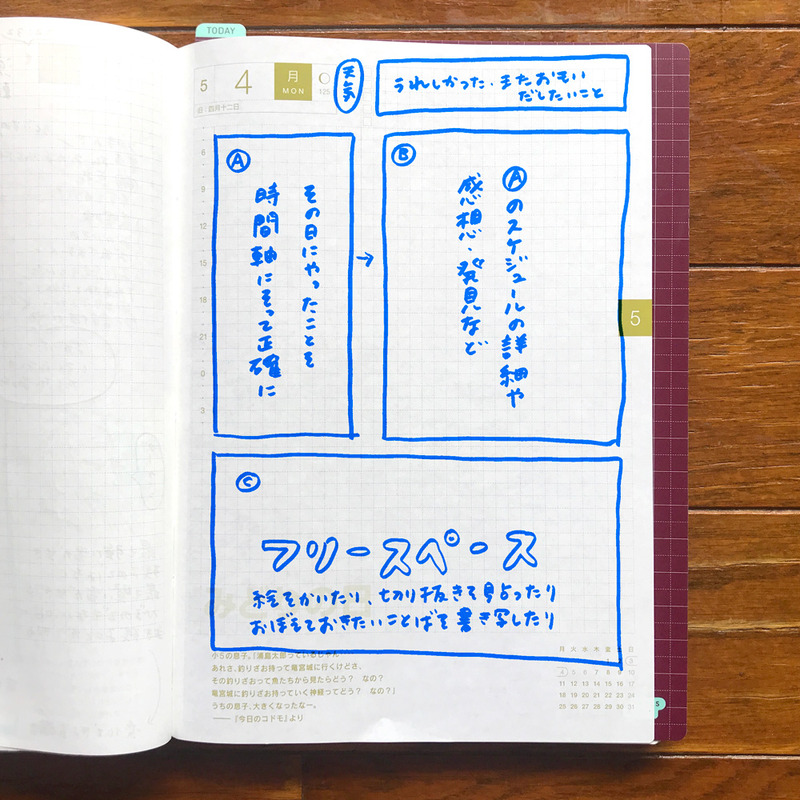 TODAY
5 4 月 MON
125
旧:四月十二日
天気
うれしかった、またおもい
だしたいこと
6
9
12
15
18
21
0
3
Ⓐ
その日にやったことを
時間軸にそって正確に
→
Ⓑ
Ⓐのスケジュールの詳細や
感想、発見など
5
Ⓒ
フリースペース
絵をかいたり、切り抜きを貼ったり
おぼえておきたいことばを書き写したり
小5の息子。「浦島太郎っているじゃん
あれさ、釣りざお持って竜宮城に行くけどさ、
その釣りざおって魚たちから見たらどう? なの?
竜宮城に釣りざお持っていく神経ってどう? なの?」
うちの息子、大きくなったなー。
──『今日のコドモ』より
月 火 水 木 金 土 日
1 2 3
4 5 6 7 8 9 10
11 12 13 14 15 16 17
18 19 20 21 22 23 24
25 26 27 28 29 30 31
5